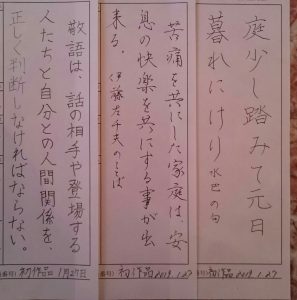 庭少し踏みて元日
暮れにけり 水巴の句
初作品 2019.1.27
苦痛を共にした家庭は、安
息の快楽を共にする事が出
来る。 伊藤左千夫のそば
初作品 2019. 1.27
敬語は、話の相手や登場する
人たちと自分との人間関係を、
正しく判断しなければならない。
初作品 1月27日